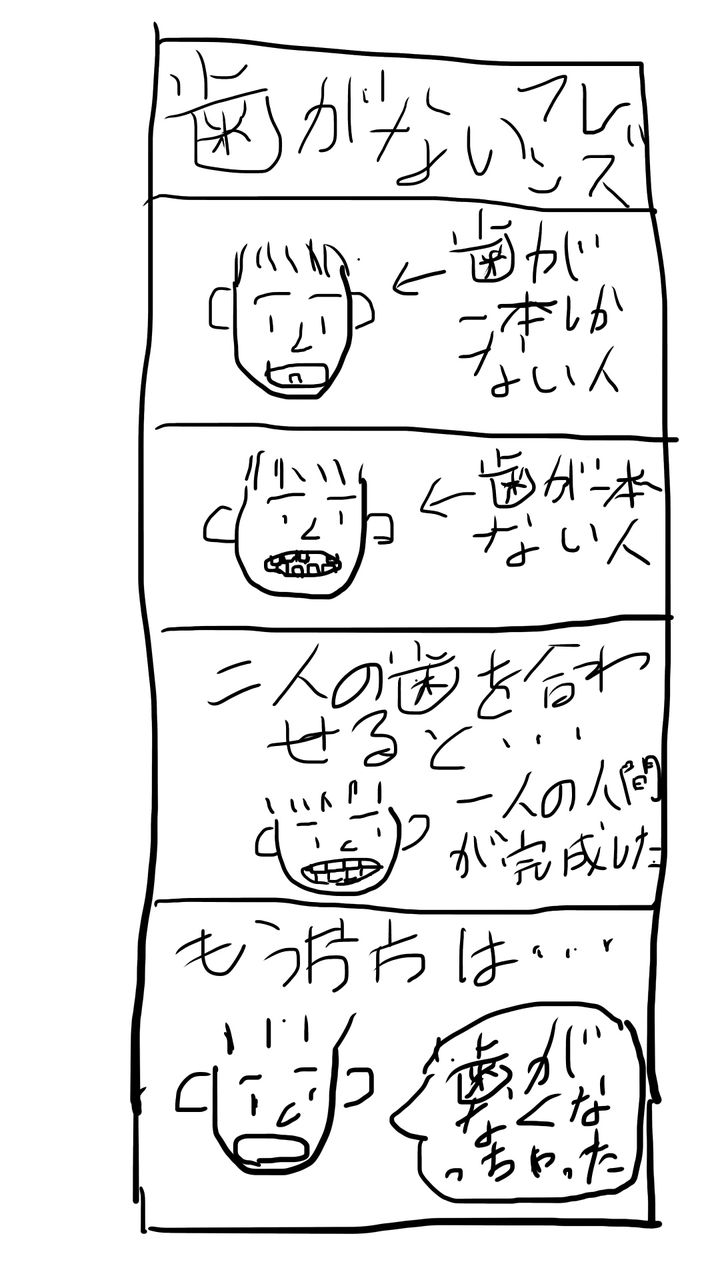 歯がないフレンズ
←歯が
一本しか
ない人
←歯が一本
ない人
二人の歯を合わ
せると・・・
一人の人間
が完成した
もう片方は・・・
歯が
なくな
っちゃった